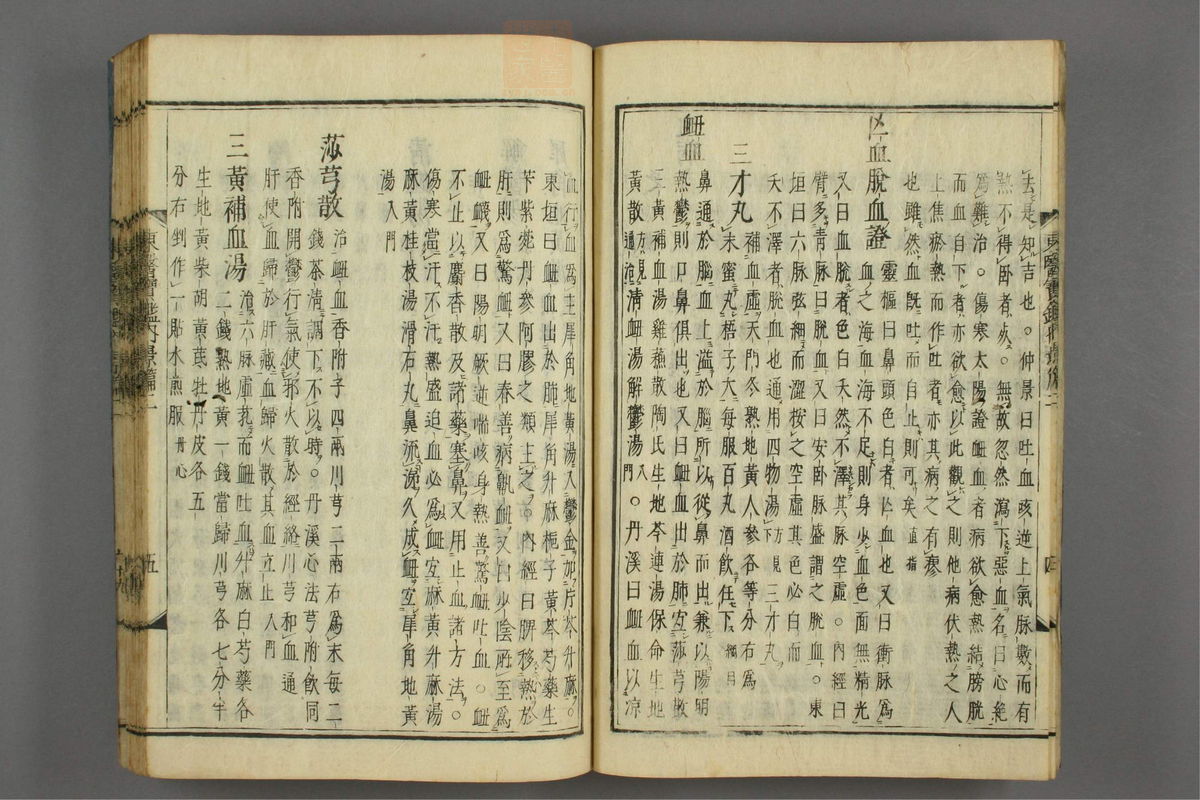 去是知吉也○仲景曰吐血咳逆上氣脉數而有
熱不得臥者死○無故忽然瀉下惡血名曰心絶
爲難治○傷寒太陽證衄血者病欲愈熱結膀胱
而血自下者亦欲愈以此觀之則他病伏熱之人
上焦瘀熱而作吐者亦其病之有瘳
也雖然血旣吐而自止則可矣直指
凶血脫血證
靈樞曰鼻頭色白者亡血也又曰衝脉爲
血之海血海不足則身少血色面無精光
又曰血脫者色白夭然不澤其脉空虛○內經曰
臂多靑脉曰脫血又曰安臥脉盛謂之脫血○東
垣曰六脉弦細而澀按之空虛其色必白而
夭不澤者脫血也通用四物湯方見三才丸
三才丸
補血虛天門冬熟地黃人參各等分右爲
末蜜丸梧子大每服百丸酒飮任下綱目
衄血
鼻通於腦血上溢於腦所以從鼻而出兼以陽明
熱鬱則口鼻俱出也又曰衄血出於肺宜莎芎散
三黃補血湯雞蘇散陶氏生地芩連湯保命生地
黃散方見通治淸衄湯解鬱湯入門○丹溪曰衄血以凉
血行血爲主犀角地黃湯入鬱金加片芩升麻○
東垣曰衄血出於肺犀角升麻梔子黃芩芍藥生
芐紫菀丹參阿膠之類主之○內經曰脾移熱於
肝則爲驚衄又曰春善病鼽衄又曰少陰所至爲
衄衊又曰陽明厥逆喘咳身熱善驚衄吐血○衄
不止以麝香散及諸藥塞鼻又用止血諸方法○
傷寒當汗不汗熱盛迫血必爲衄宜麻黃升麻湯
麻黃桂枝湯滑石丸鼻流淸久成衄宜犀角地黃
湯入門
莎芎散
治衄血香附子四兩川芎二兩右爲末每二
錢茶淸調下不以時○丹溪心法芎附飮同
香附開鬱行氣使邪火散於經絡川芎和血通
肝使血歸於肝藏血歸火散其血立止入門
三黃補血湯
治六脉虛芤而衄吐血升麻白芍藥各
二錢熟地黃一錢當歸川芎各七分半
生地黃柴胡黃芪牡丹皮各五
分右剉作一貼水煎服丹心
東醫寶鑑內景篇二
五
四